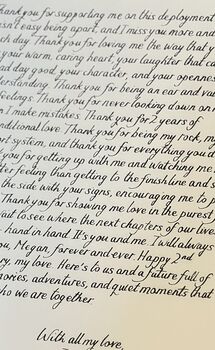 Thank you for supporting me on this deployment
isn't easy being apart, and I miss you more and
ch day. Thank you for loving me the way that y
your warm, caring heart, your laughter that ca
ad day good, your character, and your openness
erstanding. Thank you for being an ear and va
feelings. Thank you for never looking down on
n I make mistakes. Thank you for 2 years of
ditional love. Thank you for being my rock, m
ort system, and thank you for everything you d
you for getting up with me and watching me
ter feeling than getting to the finish line and s
the side with your signs, encouraging me to p
Thank you for showing me love in the purest
vait to see where the next chapters of our lives
hand in hand. It's you and me. I will always
ou, Megan, forever and ever. Happy 2nd
ry, my love. Here's to us and a future full of
mories, adventures, and quiet moments that
ho we are together.
With all my love,